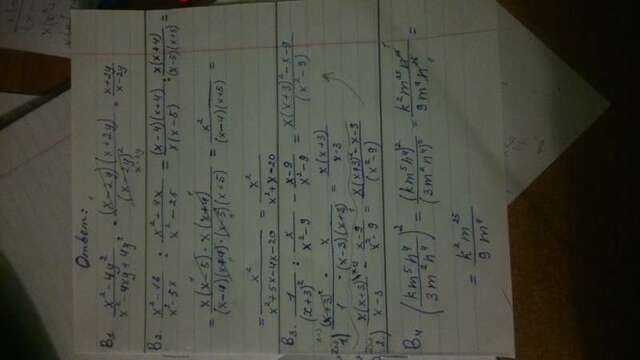 Ответ:
B1 (x²-4y²)/(x²-4xy+4y²) = ((x-2y)(x+2y))/(x-2y)² = (x+2y)/(x-2y)
B2. (x²-16)/(x²-5x) : (x²+4x)/(x²-25) = ((x-4)(x+4))/(x(x-5)) : (x(x+4))/((x-5)(x+5)) =
= (x(x-5)·x(x+4))/((x-4)(x+4)·(x-5)(x+5)) = x²/((x-4)(x+5)) =
= x²/(x²+5x-4x-20) = x²/(x²+x-20)
B3. 1/(x+3)² : x/(x²-9) - (x-9)/(x²-9) = (x(x+3)²-x-9)/(x²-9)
1) (x+3)²/1 · x/((x-3)(x+3)) = (x(x+3))/(x-3)
2.) (x(x+3))/(x-3) - (x-9)/(x²-9) = (x(x+3)²-x-9)/(x²-9)
B4 (km⁵n⁴/3m²n⁴)² = (km⁵n⁴)²/(3m²n⁴)² = k²m²⁵n¹⁶/9m⁴n¹⁶ =
= k²m²⁵/9m⁴